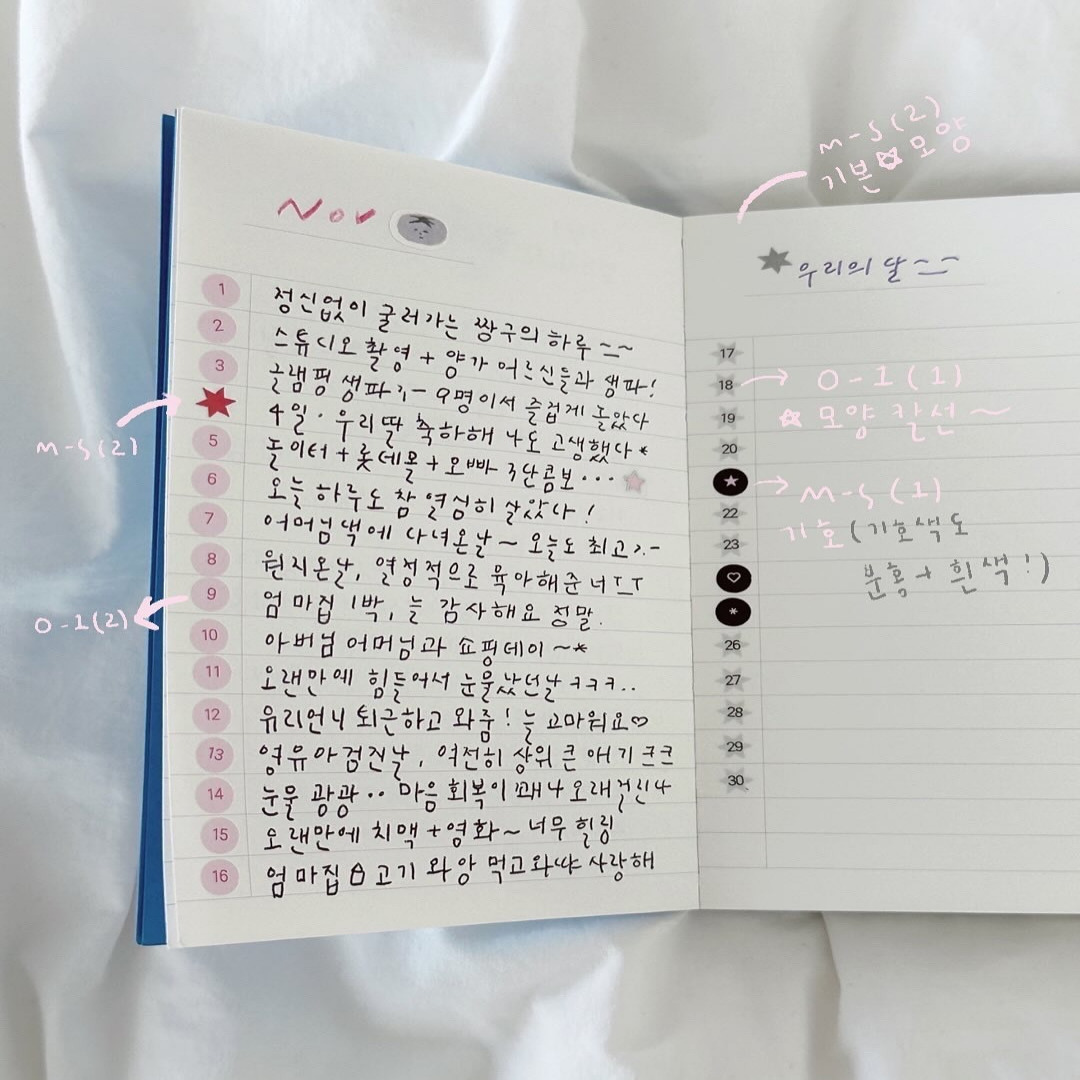 Nov
1 정신없이 굴러가는 짱구의 하루
2 스튜디오 촬영 + 양가 어르신들과 생파!
3 글램핑 생파 9명이서 즐겁게 놀았다
4일. 우리딸 축하해 나도 고생했다*
5 놀이터+롯데몰+오빠 3단콤보...
6 오늘 하루도 참 열심히 살았다!
7 어머님댁에 다녀온날~ 오늘도 최고
8 원지온날, 열정적으로 육아해준너ㅜㅜ
9 엄마집 1박, 늘 감사해요 정말.
10 아버님 어머님과 쇼핑데이~*
11 오랜만에 힘들어서 눈물났던날 ㅋㅋㅋ..
12 유리언니 퇴근하고 와줌! 늘 고마워요♡
13 영유아검진날, 여전히 상위 큰 애기 ㅋㅋㅋ
14 눈물 광광.. 마음 회복이 꽤나 오래걸린나
15 오랜만에 치맥+영화~ 너무 힐링
16 엄마집 고기 와앙 먹고와따 사랑해
m-s(2)
o-1(2)
m-s(2)
기본☆모양
우리의 달
17
18 o-1(1)
19 ☆모양 칼선~
20
★ m-s(1)
22 기호(기호색도
23 분홍+흰색!)
♡
*
26
27
28
29
30